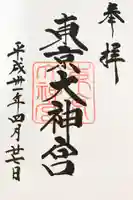 奉拝
東京大神宮
平成卅一年四月廿七日